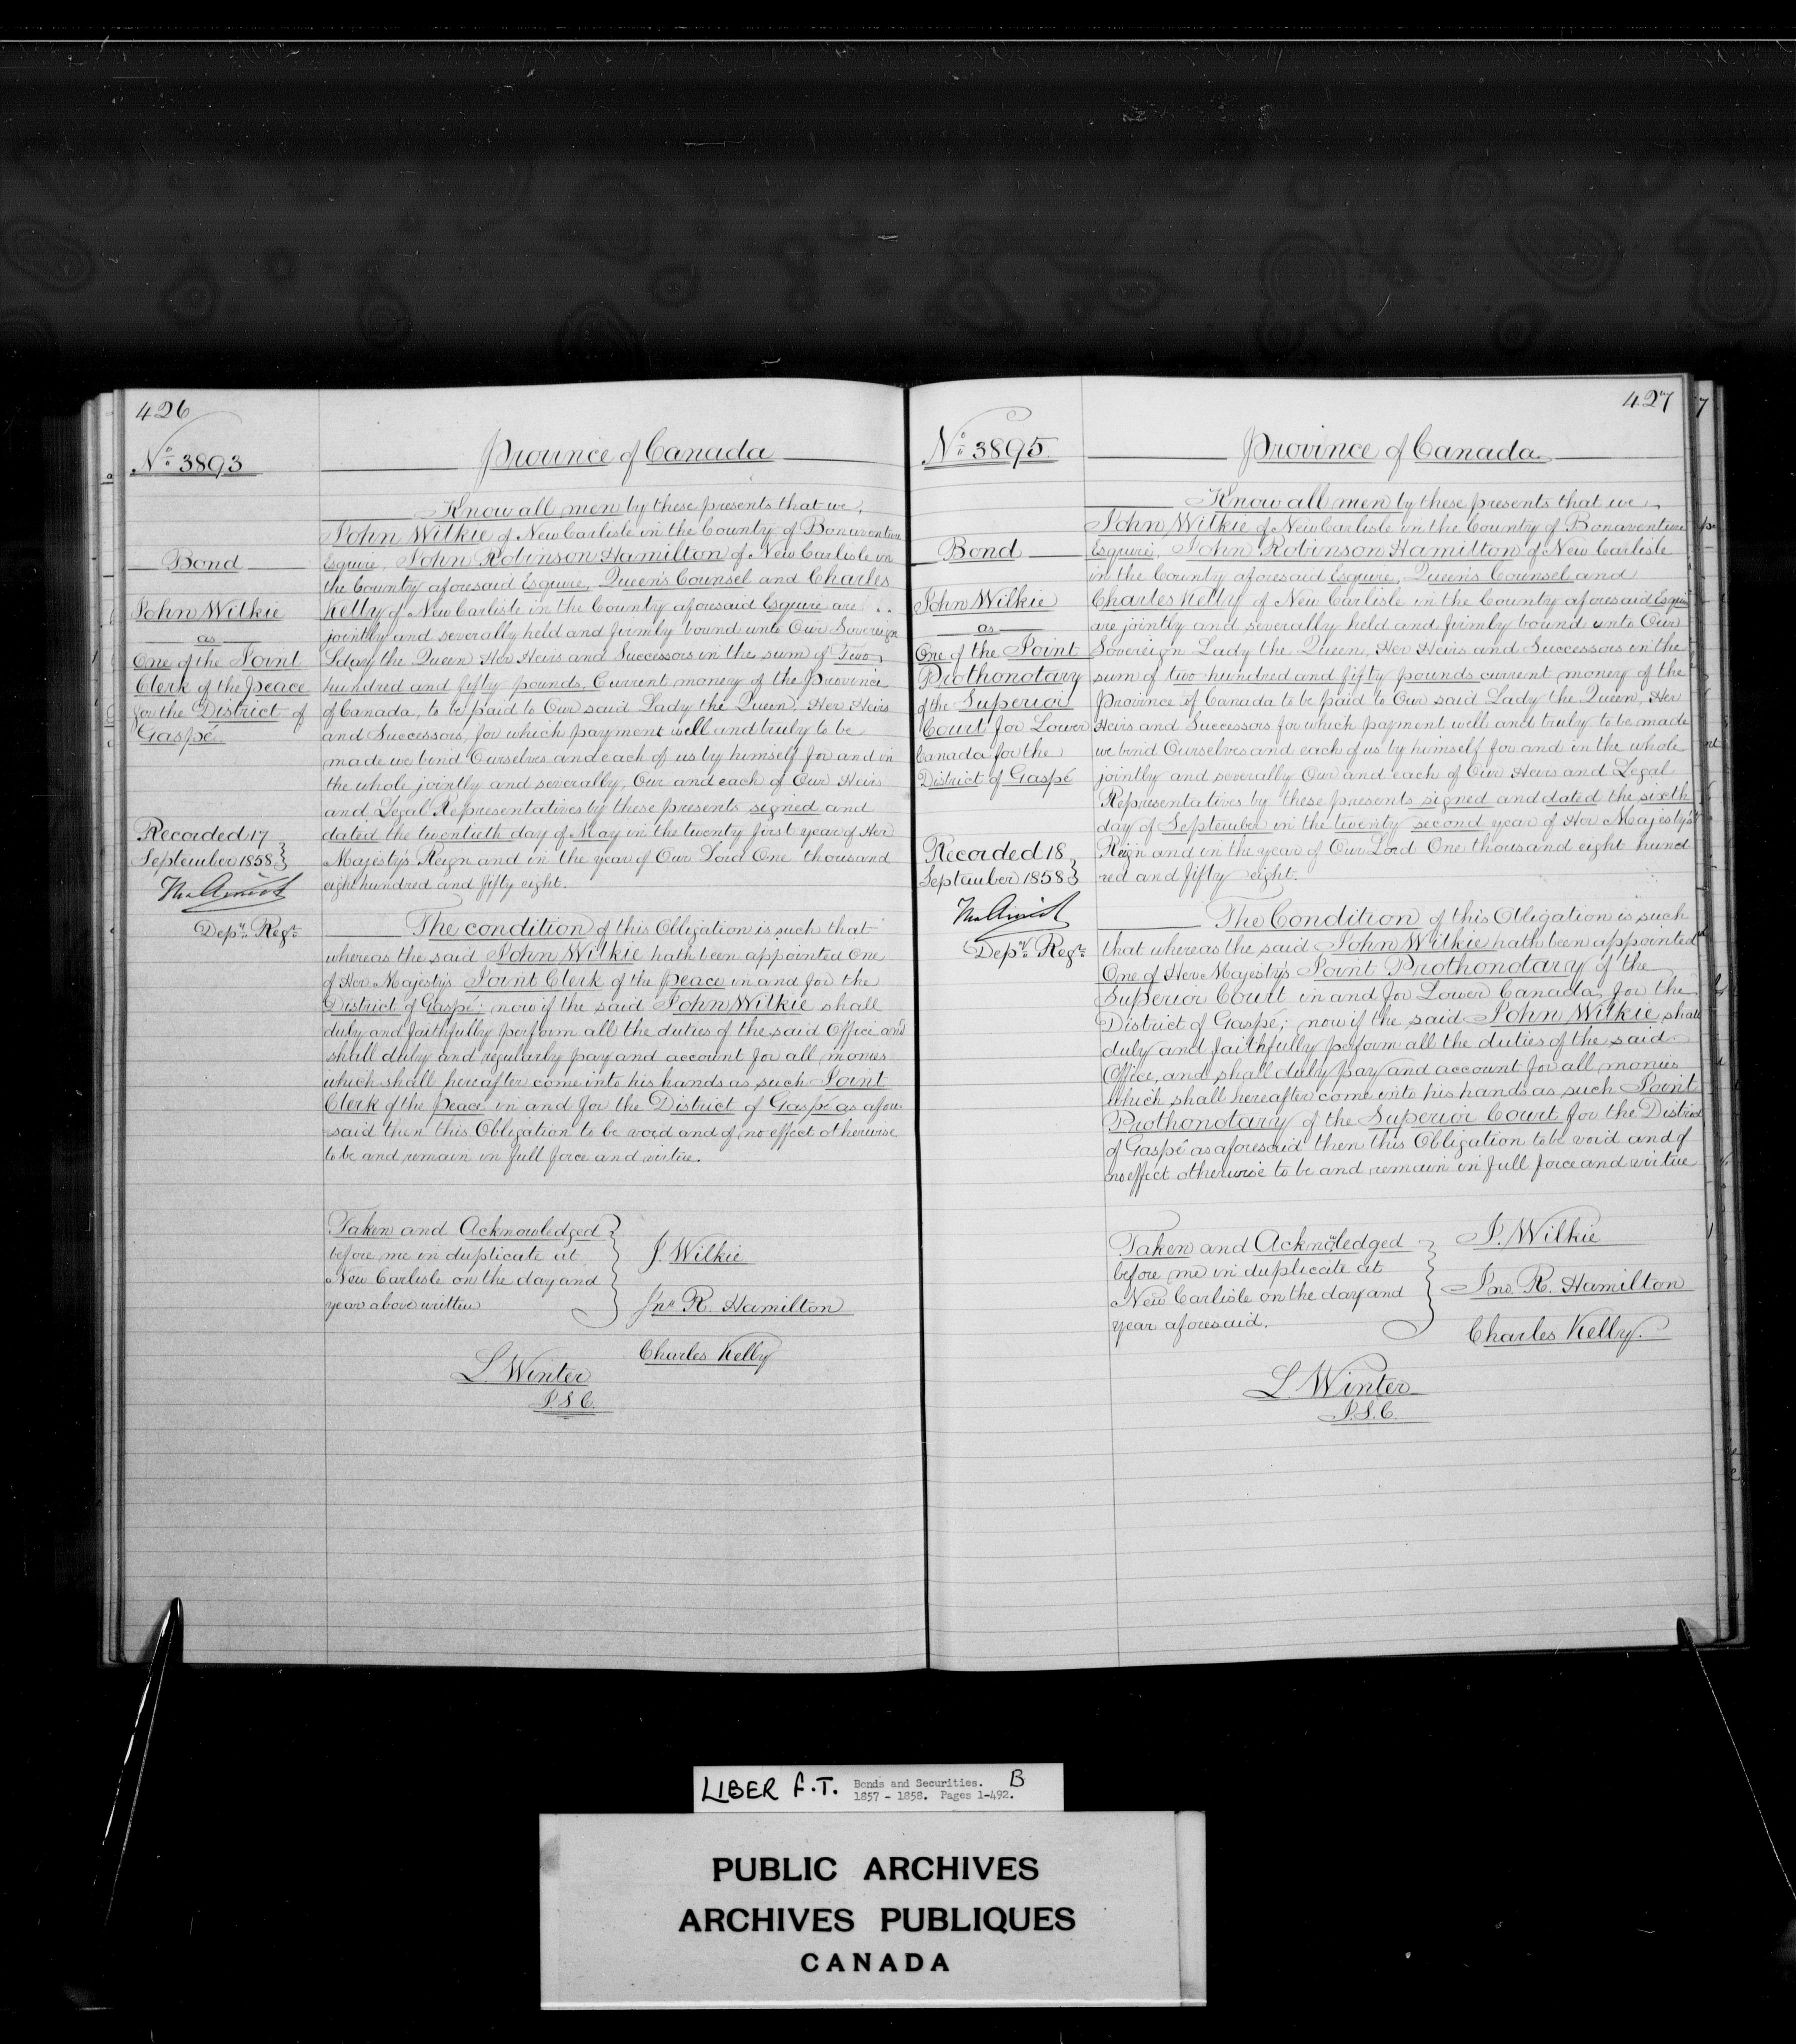 426
No. 3893
Province of Canada
Bond
John Wilkie
as
One of the Joint
Clerk of the peace
for the District of
Gaspé.
Recorded 17
September 1858
Depy. Regr.
Know all men by these presents that we,
John Wilkie of New Carlisle in the County of Bonaventure
Esquire, John Robinson Hamilton of New Carlisle in
the County aforesaid Esquire, Queen's Counsel and Charles
Kelly of New Carlisle in the County aforesaid Esquire are
jointly and severally held and firmly bound unto Our Sovereign
Lday the Queen Her Heirs and Successors in the sum of Two
hundred and fifty pounds, Current money of the Province
of Canada, to be paid to Our said Lady the Queen, Her Heirs
and Successors, for which payment well and truly to be
made we bind Ourselves and each of us by himself for and in
the whole jointly and severally, Our and each of Our Heirs
and Legal Representatives by these presents signed and
dated the twentieth day of May in the twenty first year of Her
Majesty's Reign and in the year of Our Lord One thousand
eight hundred and fifty eight.
The condition of this Obligation is such that
whereas the said John Wilkie hath been appointed One
of Her Majesty's Joint Clerk of the peace in and for the
District of Gaspé; now if the said John Wilkie shall
duly and faithfully perform all the duties of the said Office and
shall duly and regularly pay and account for all monies
which shall hereafter come into his hands as such Joint
Clerk of the peace in and for the District of Gaspé as afore
said then this Obligation to be void and of no effect otherwise
to be and remain in full force and virtue.
Taken and Acknowledged
before me in duplicate at
New Carlisle on the day and
year above written
J. Wilkie
Jno R. Hamilton
Charles Kelly
L. Winter
P.S.C.
427
No. 3895
Province of Canada
Bond
John Wilkie
as
One of the Joint
Prothonotary
of the Superior
Court for Lower
Canada for the
District of Gaspé
Recorded 18
September 1858
Depy. Regr.
Know all men by these presents that we
John Wilkie of New Carlisle in the County of Bonaventure
Esquire, John Robinson Hamilton of New Carlisle
in the County aforesaid Esquire, Queen's Counsel and
Charles Kelly of New Carlisle in the County aforesaid Esquire
are jointly and severally held and firmly bound unto Our
Sovereign Lady the Queen, Her Heirs and Successors in the
sum of two hundred and fifty pounds current money of the
Province of Canada to be paid to Our said Lady the Queen, Her
Heirs and Successors for which payment well and truly to be made
we bind Ourselves and each of us by himself for and in the whole
jointly and severally Our and each of Our Heirs and Legal
Representatives by these presents signed and dated the sixth
day of September in the twenty second year of Her Majesty's
Reign and in the year of Our Lord One thousand eight hund
red and fifty eight.
The Condition of this Obligation is such
that whereas the said John Wilkie hath been appointed
One of Her Majesty's Joint Prothonotary of the
Superior Court in and for Lower Canada, for the
District of Gaspé; now if the said John Wilkie shall
duly and faithfully perform all the duties of the said
Office, and shall duly pay and account for all monies
which shall hereafter come into his hands as such Joint
Prothonotary of the Superior Court for the District
of Gaspé as aforesaid then this Obligation to be void and of
no effect otherwise to be and remain in full force and virtue
Taken and Acknowledged
before me in duplicate at
New Carlisle on the day and
year aforesaid.
J. Wilkie
Jno. R. Hamilton
Charles Kelly.
L. Winter
P.S.C.
LIBER F.T. Bonds and Securities. B
1857 - 1858. Pages 1-492.
PUBLIC ARCHIVES
ARCHIVES PUBLIQUES
CANADA